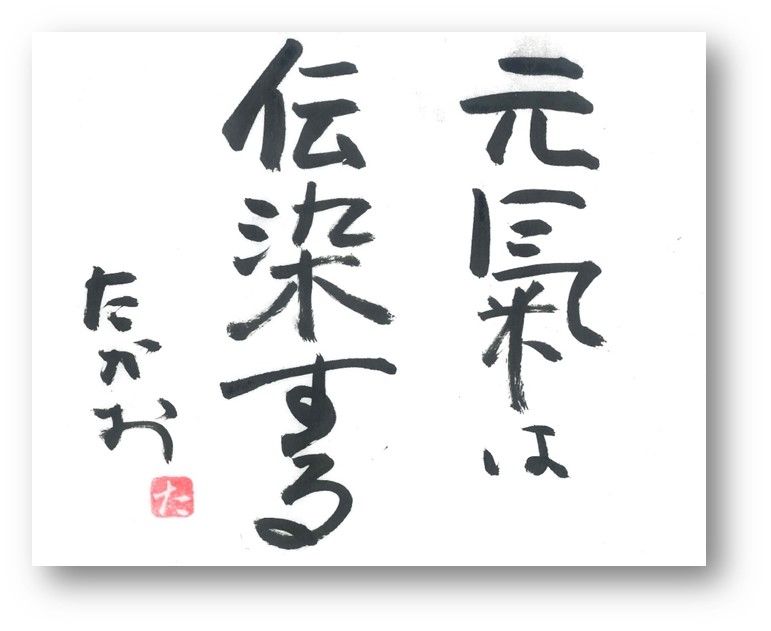 元氣は
伝染する
たかお
た